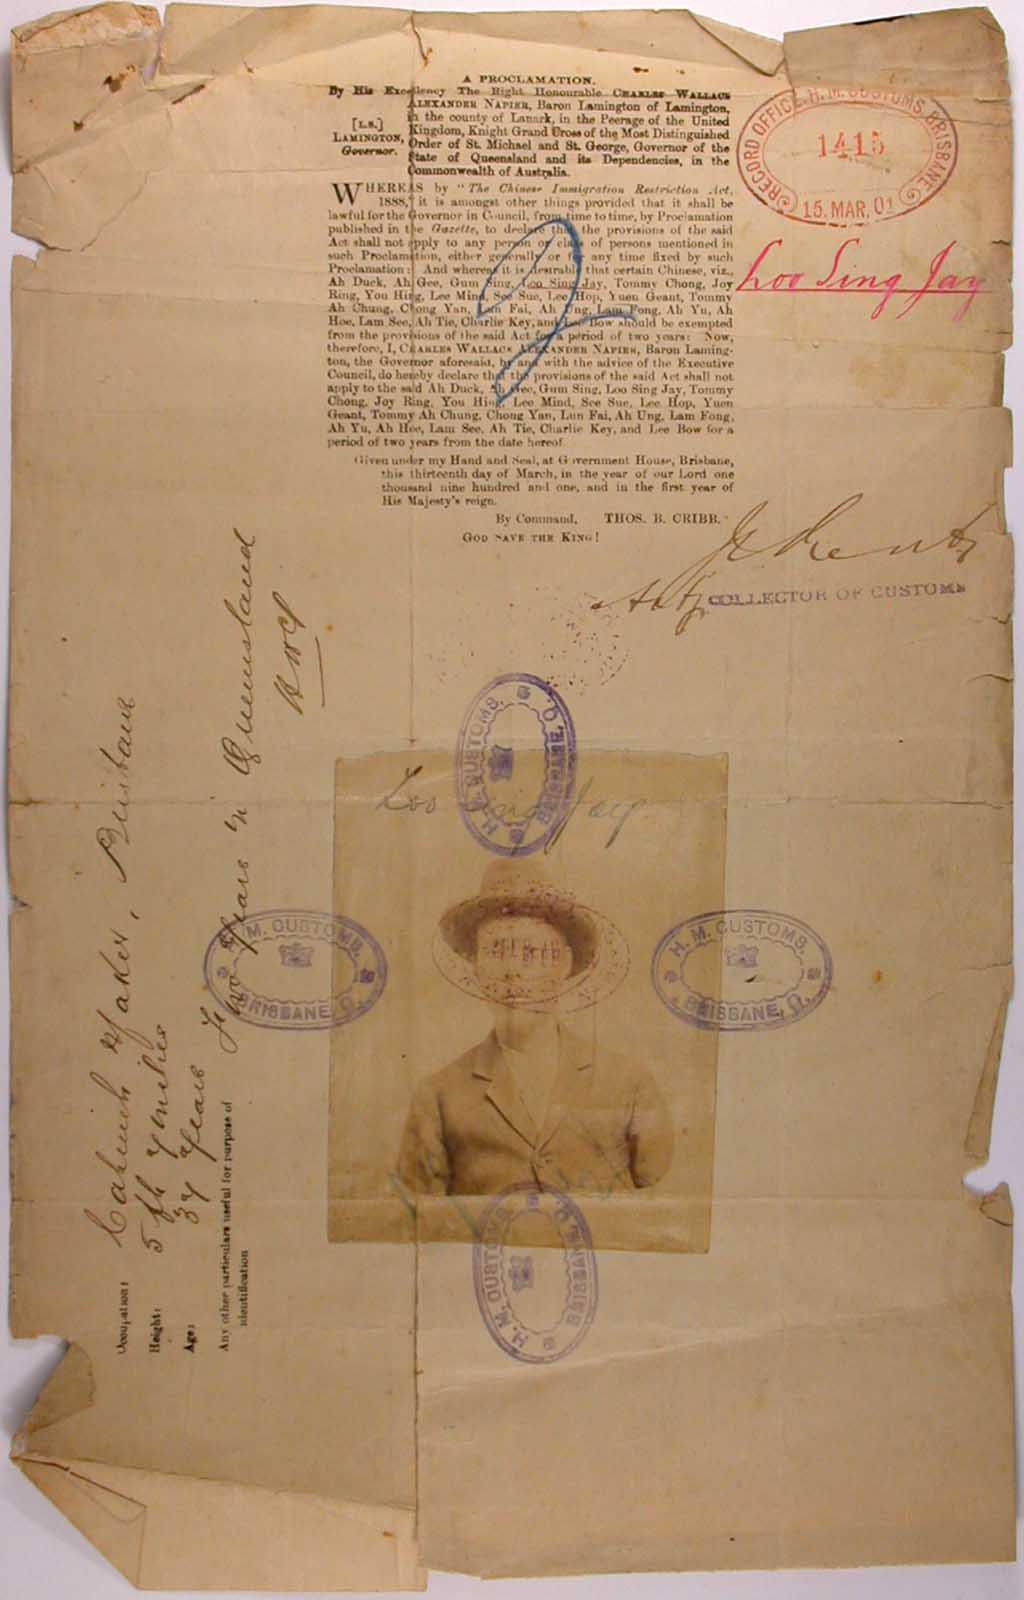 A PROCLAMATION.
By His Excellency The Right Honourable CHARLES WALLACE
ALEXANDER NAPIER, Baron Lamington of Lamington,
in the county of Lanark, in the Peerage of the United
[L.S.] Kingdom, Knight Grand Cross of the Most Distinguished
LAMINGTON, Order of St. Michael and St. George, Governor of the
Governor. State of Queensland and its Dependencies, in the
Commonwealth of Australia.
WHEREAS by "The Chinese Immigration Restriction Act,
1888," it is amongst other things provided that it shall be
lawful for the Governor in Council, from time to time, by Proclamation
published in the Gazette, to declare that the provisions of the said
Act shall not apply to any person or class of persons mentioned in
such Proclamation, either generally or for any time fixed by such
Proclamation: And whereas it is desirable that certain Chinese, viz.,
Ah Duck, Ah Gee, Gum Sing, Loo Sing Jay, Tommy Chong, Joy
Ring, You Hing, Lee Mind, See Sue, Lee Hop, Yuen Geant, Tommy
Ah Chung, Chong Yan, Lun Fai, Ah Ung, Lam Fong, Ah Yu, Ah
Hoe, Lam See, Ah Tie, Charlie Key, and Lee Bow should be exempted
from the provisions of the said Act for a period of two years: Now,
therefore, I, CHARLES WALLACE ALEXANDER NAPIER, Baron Laming-
ton, the Governor aforesaid, by and with the advice of the Executive
Council, do hereby declare that the provisions of the said Act shall not
apply to the said Ah Duck, Ah Gee, Gum Sing, Loo Sing Jay, Tommy
Chong, Joy Ring, You Hing, Lee Mind, See Sue, Lee Hop, Yuen
Geant, Tommy Ah Chung, Chong Yan, Lun Fai, Ah Ung, Lam Fong,
Ah Yu, Ah Hoe, Lam See, Ah Tie, Charlie Key, and Lee Bow for a
period of two years from the date hereof.
Given under my Hand and Seal, at Government House, Brisbane,
this thirteenth day of March, in the year of our Lord one
thousand nine hundred and one, and in the first year of
His Majesty's reign.
By Command, THOS. B. CRIBB.
GOD SAVE THE KING!
RECORD OFFICE, H.M. CUSTOMS, BRISBANE
1415
15. MAR. 01
Loo Sing Jay
COLLECTOR OF CUSTOMS
H. M. CUSTOMS.
BRISBANE, Q.
Loo Sing Jay
H. M. CUSTOMS.
BRISBANE, Q.
H. M. CUSTOMS.
BRISBANE, Q.
H. M. CUSTOMS.
BRISBANE, Q.
Occupation: Cabinet Maker, Brisbane
Height: 5 ft 7 inches
Age: 37 Years
Any other particulars useful for purpose of
identification Two Years in Queensland